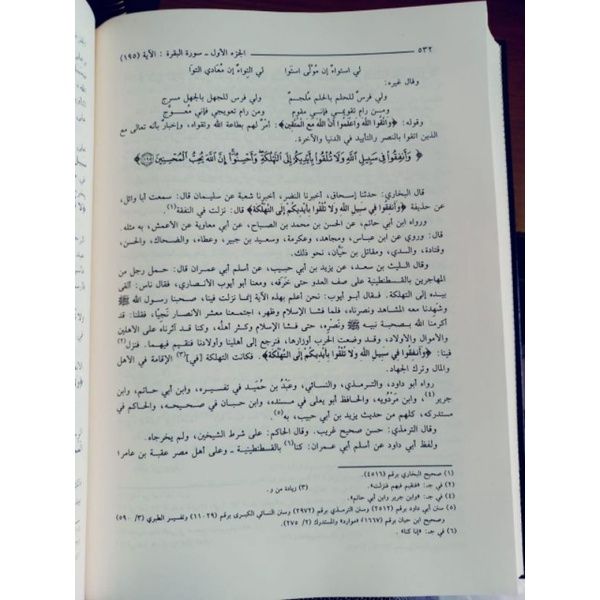 ٥٣٢
الجزء الأول ـ سورة البقرة : الآية (١٩٥)
لي استواء إن مُوَلَّى استَوا لي التِواء إن مُعَادي التوَا
وقال غيره:
ولي فرس للحلم بالحلم مُلجمٌ ولي فرس للجهل بالجهل مسرج
ومن رام تقويمي فإني مقوم ومن رام تعويجي فإني معوج
وقوله: ﴿واتقوا الله واعلموا أن الله مع المتقين﴾: أمرٌ لهم بطاعة الله وتقواه، وإخبار بأنه تعالى مع
الذين اتقوا بالنصر والتأييد في الدنيا والآخرة.
﴿ وَأَنفِقُوا فِي سَبِيلِ اللَّهِ وَلَا تُلْقُوا بِأَيْدِيكُمْ إِلَى التَّهْلُكَةِ وَأَحْسِنُوا إِنَّ اللَّهَ يُحِبُّ الْمُحْسِنِينَ ﴾
قال البخاري: حدثنا إسحاق، أخبرنا النضر، أخبرنا شعبة عن سليمان قال: سمعت أبا وائل،
عن حذيفة ﴿وأنفقوا في سبيل الله ولا تلقوا بأيديكم إلى التهلكة﴾ قال: نزلت في النفقة(١).
ورواه ابن أبي حاتم، عن الحسن بن محمد بن الصباح، عن أبي معاوية عن الأعمش، به مثله.
قال: وروي عن ابن عباس، ومجاهد، وعكرمة، وسعيد بن جبير، وعطاء، والضحاك، والحسن،
وقتادة، والسدي، ومقاتل بن حَيَّان، نحو ذلك.
وقال الليث بن سعد، عن يزيد بن أبي حبيب، عن أسلم أبي عمران قال: حمل رجل من
المهاجرين بالقسطنطينية على صف العدو حتى خَرَقه، ومعنا أبو أيوب الأنصاري، فقال ناس: ألقى
بيده إلى التهلكة. فقال أبو أيوب: نحن أعلم بهذه الآية إنما نزلت فينا، صحبنا رسول الله ﷺ
وشهدنا معه المشاهد ونصرناه، فلما فشا الإسلام وظهر، اجتمعنا معشر الأنصار نَجِيًّا، فقلنا: قد
أكرمنا الله بصحبة نبيه ﷺ ونَصْرِه، حتى فشا الإسلام وكثر أهلُه، وكنا قد آثرناه على الأهلين
والأموال والأولاد، وقد وضعت الحرب أوزارها، فنرجع إلى أهلينا وأولادنا فنقيم فيهما. فنزل(٢)
فينا: ﴿وأنفقوا في سبيل الله ولا تلقوا بأيديكم إلى التهلكة﴾. فكانت التهلكة [في](٣) الإقامة في الأهل
والمال وترك الجهاد.
رواه أبو داود، والترمذي، والنسائي، وعَبْدُ بن حُمَيد في تفسيره، وابن أبي حاتم، وابن
جرير(٤)، وابن مَرْدُويه، والحافظ أبو يعلى في مسنده، وابن حبان في صحيحه، والحاكم في
مستدركه، كلهم من حديث يزيد بن أبي حبيب، به(٥).
وقال الترمذي: حسن صحيح غريب. وقال الحاكم: على شرط الشيخين، ولم يخرجاه.
ولفظ أبي داود عن أسلم أبي عمران: كنا(٦) بالقسطنطينية ـ وعلى أهل مصر عقبة بن عامر؛
(١) صحيح البخاري برقم (٤٥١٦).
(٢) في جـ: «فنقيم فيهم فنزلت». (٣) زيادة من و.
(٤) في جـ: «وابن جرير وابن أبي حاتم».
(٥) سنن أبي داود برقم (٢٥١٢) وسنن الترمذي برقم (٢٩٧٢) وسنن النسائي الكبرى برقم (١١٠٢٩) وتفسير الطبري (٣/ ٥٩٠)
وصحيح ابن حبان برقم (١٦٦٧) «موارد» والمستدرك (٢/ ٢٧٥).
(٦) في جـ: «إنا كنا».